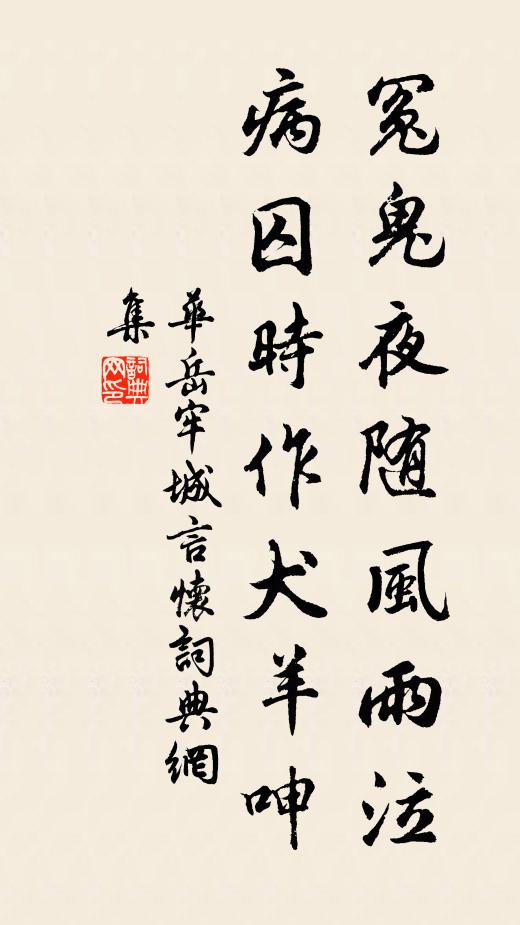 冤鬼夜随風雨泣
病囚時作犬羊呻
華岳牢城言懷詞典網
集
詞典網印